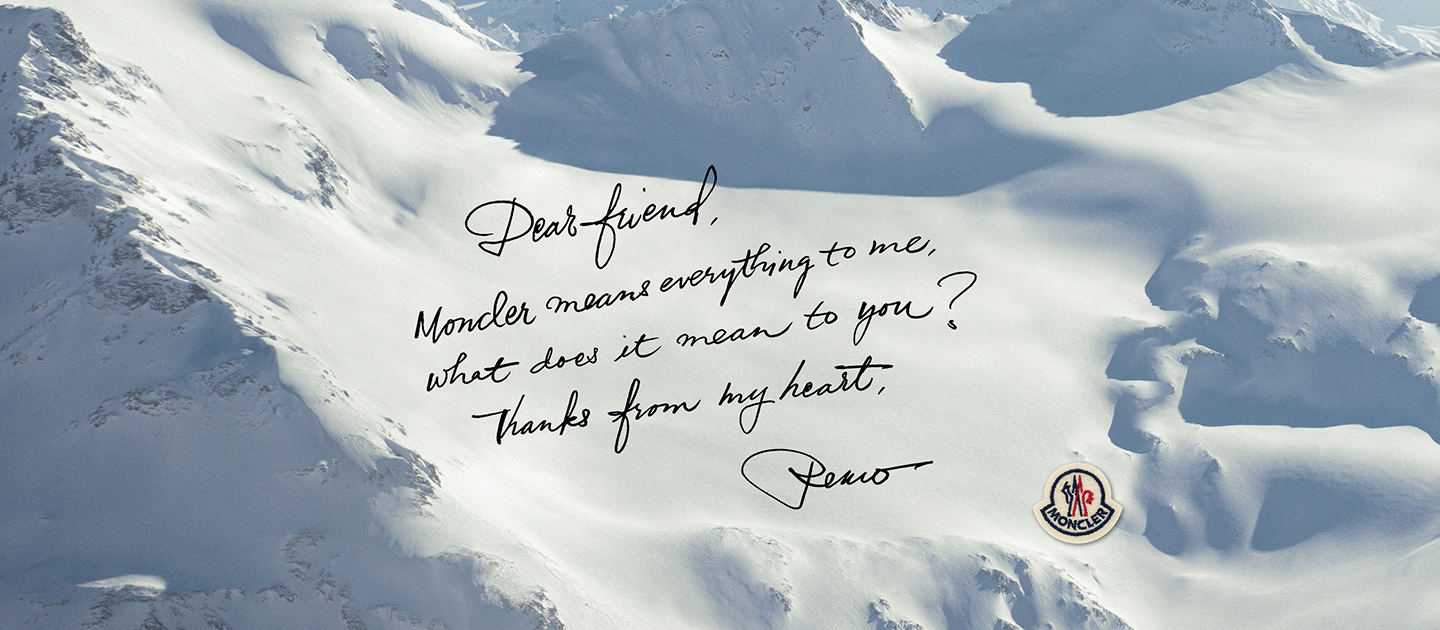 Dear friend,
Moncler means everything to me,
what does it mean to you?
Thanks from my heart,
Remo
MONCLER